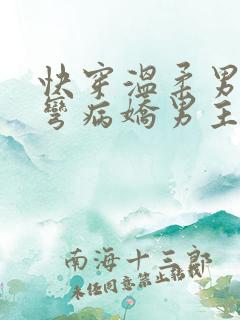 快穿溫柔男
彎病嬌男主
南海十三郎
未经同意禁止转载